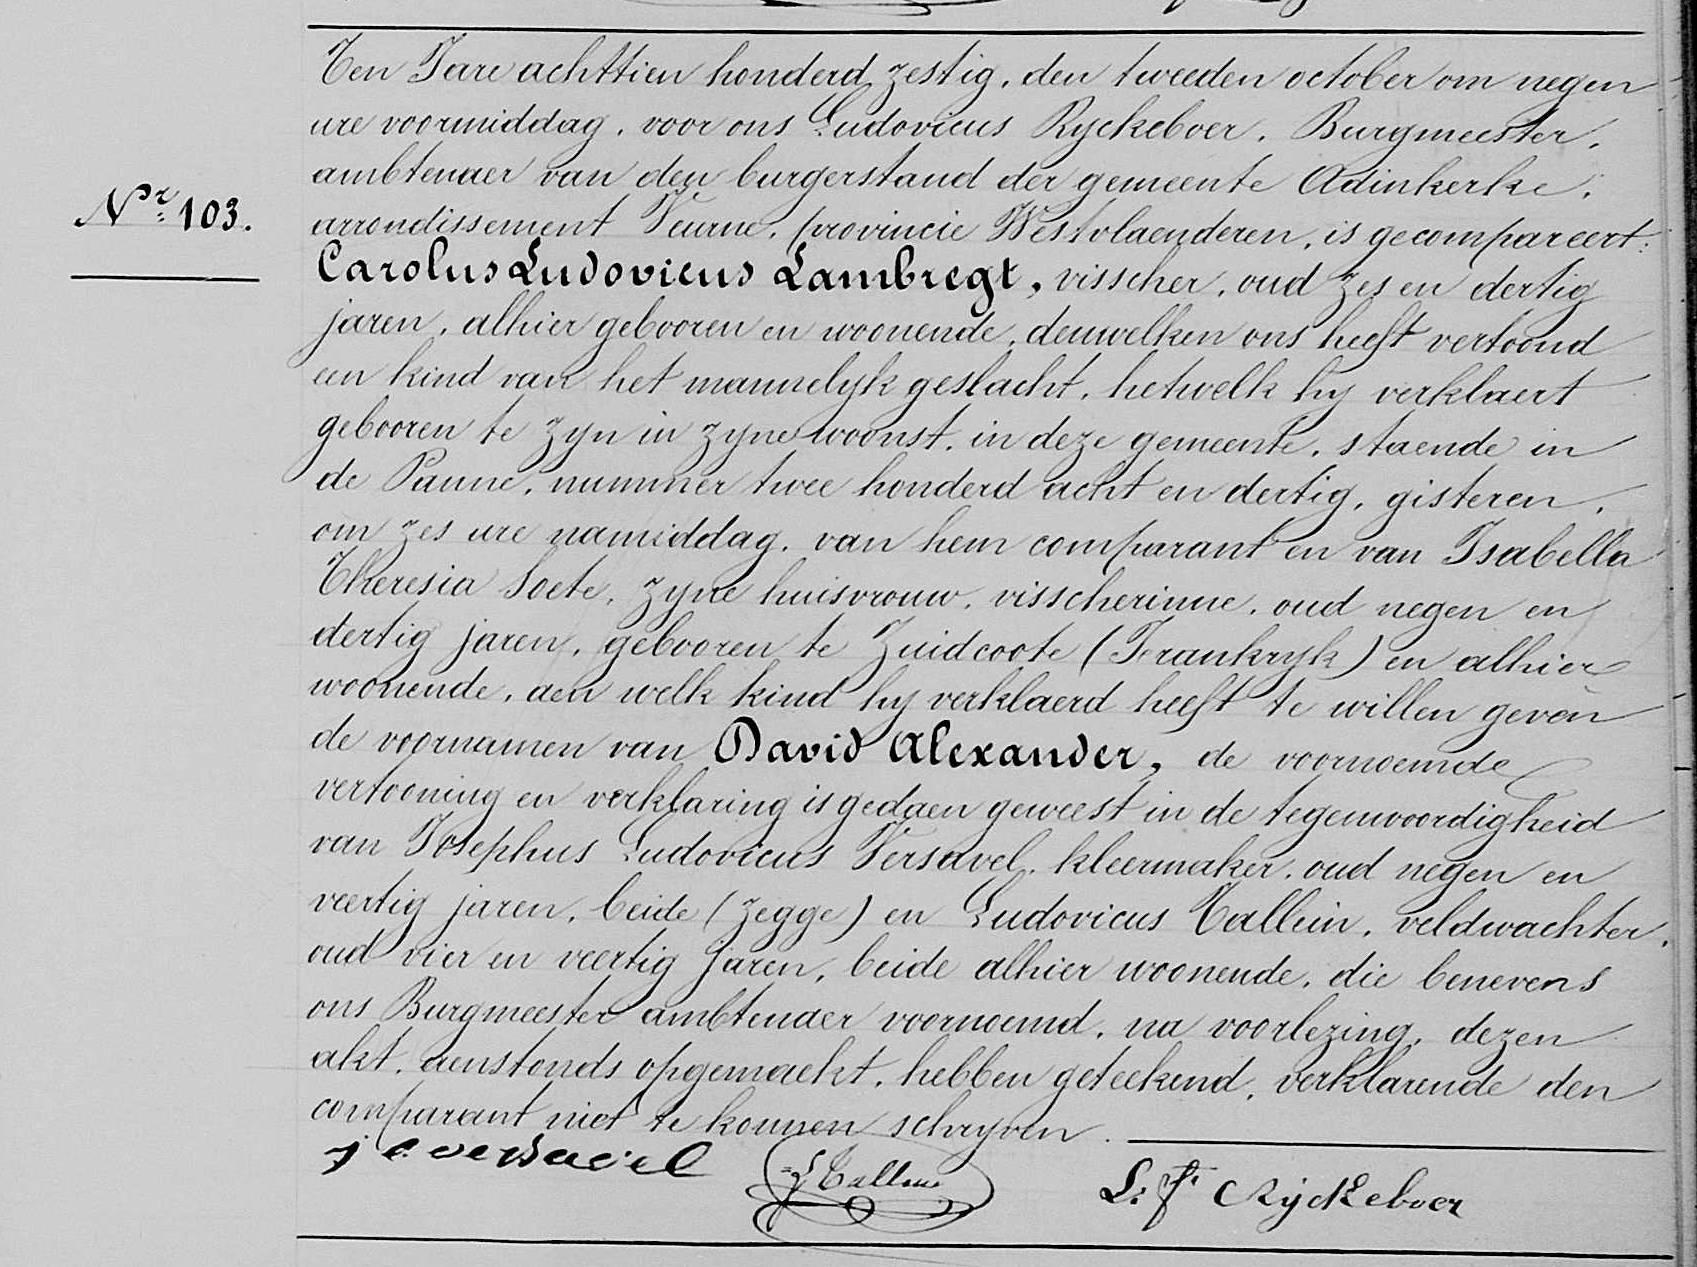 Nr. 103.
Ten Jare achttien honderd zestig, den tweeden october om negen
ure voormiddag, voor ons Ludovicus Ryckeboer, Burgmeester,
ambtenaer van den burgerstand der gemeente Adinkerke,
arrondissement Veurne, provincie Westvlaenderen, is gecompareert:
Carolus Ludovicus Lambregt, visscher, oud zes en dertig
jaren, alhier gebooren en woonende, denwelken ons heeft vertoond
een kind van het mannelyk geslacht, hetwelk hy verklaert
gebooren te zyn in zyne woonst, in deze gemeente, staende in
de Panne, nummer twee honderd acht en dertig, gisteren,
om zes ure namiddag, van hem comparant en van Isabella
Theresia Soete, zyne huisvrouw, visscherinne, oud negen en
dertig jaren, gebooren te Zuidcoote (Frankryk) en alhier
woonende, aen welk kind hy verklaerd heeft te willen geven
de voornamen van David Alexander, de voornoemde
vertooning en verklaring is gedaen geweest in de tegenwoordigheid
van Josephus Ludovicus Versavel, kleermaker, oud negen en
veertig jaren, beide (zegge) en Ludovicus Tallein, veldwachter,
oud vier en veertig jaren, beide alhier woonende, die benevens
ons Burgmeester ambtenaer voornoemd, na voorlezing, dezen
akt, aenstonds opgemaekt, hebben geteekend, verklarende den
comparant niet te konnen schryven.
j l versavel L Tallein L: f. Ryckeboer